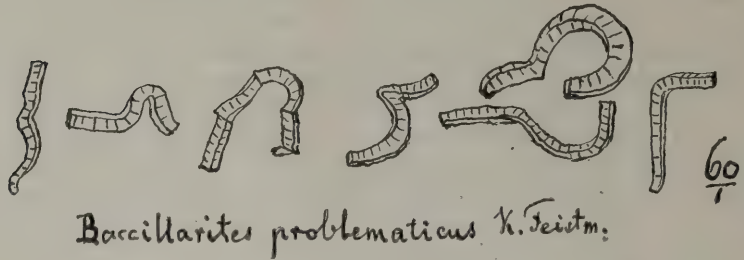 60
1
Baccillarites problematicus K. Feistm.